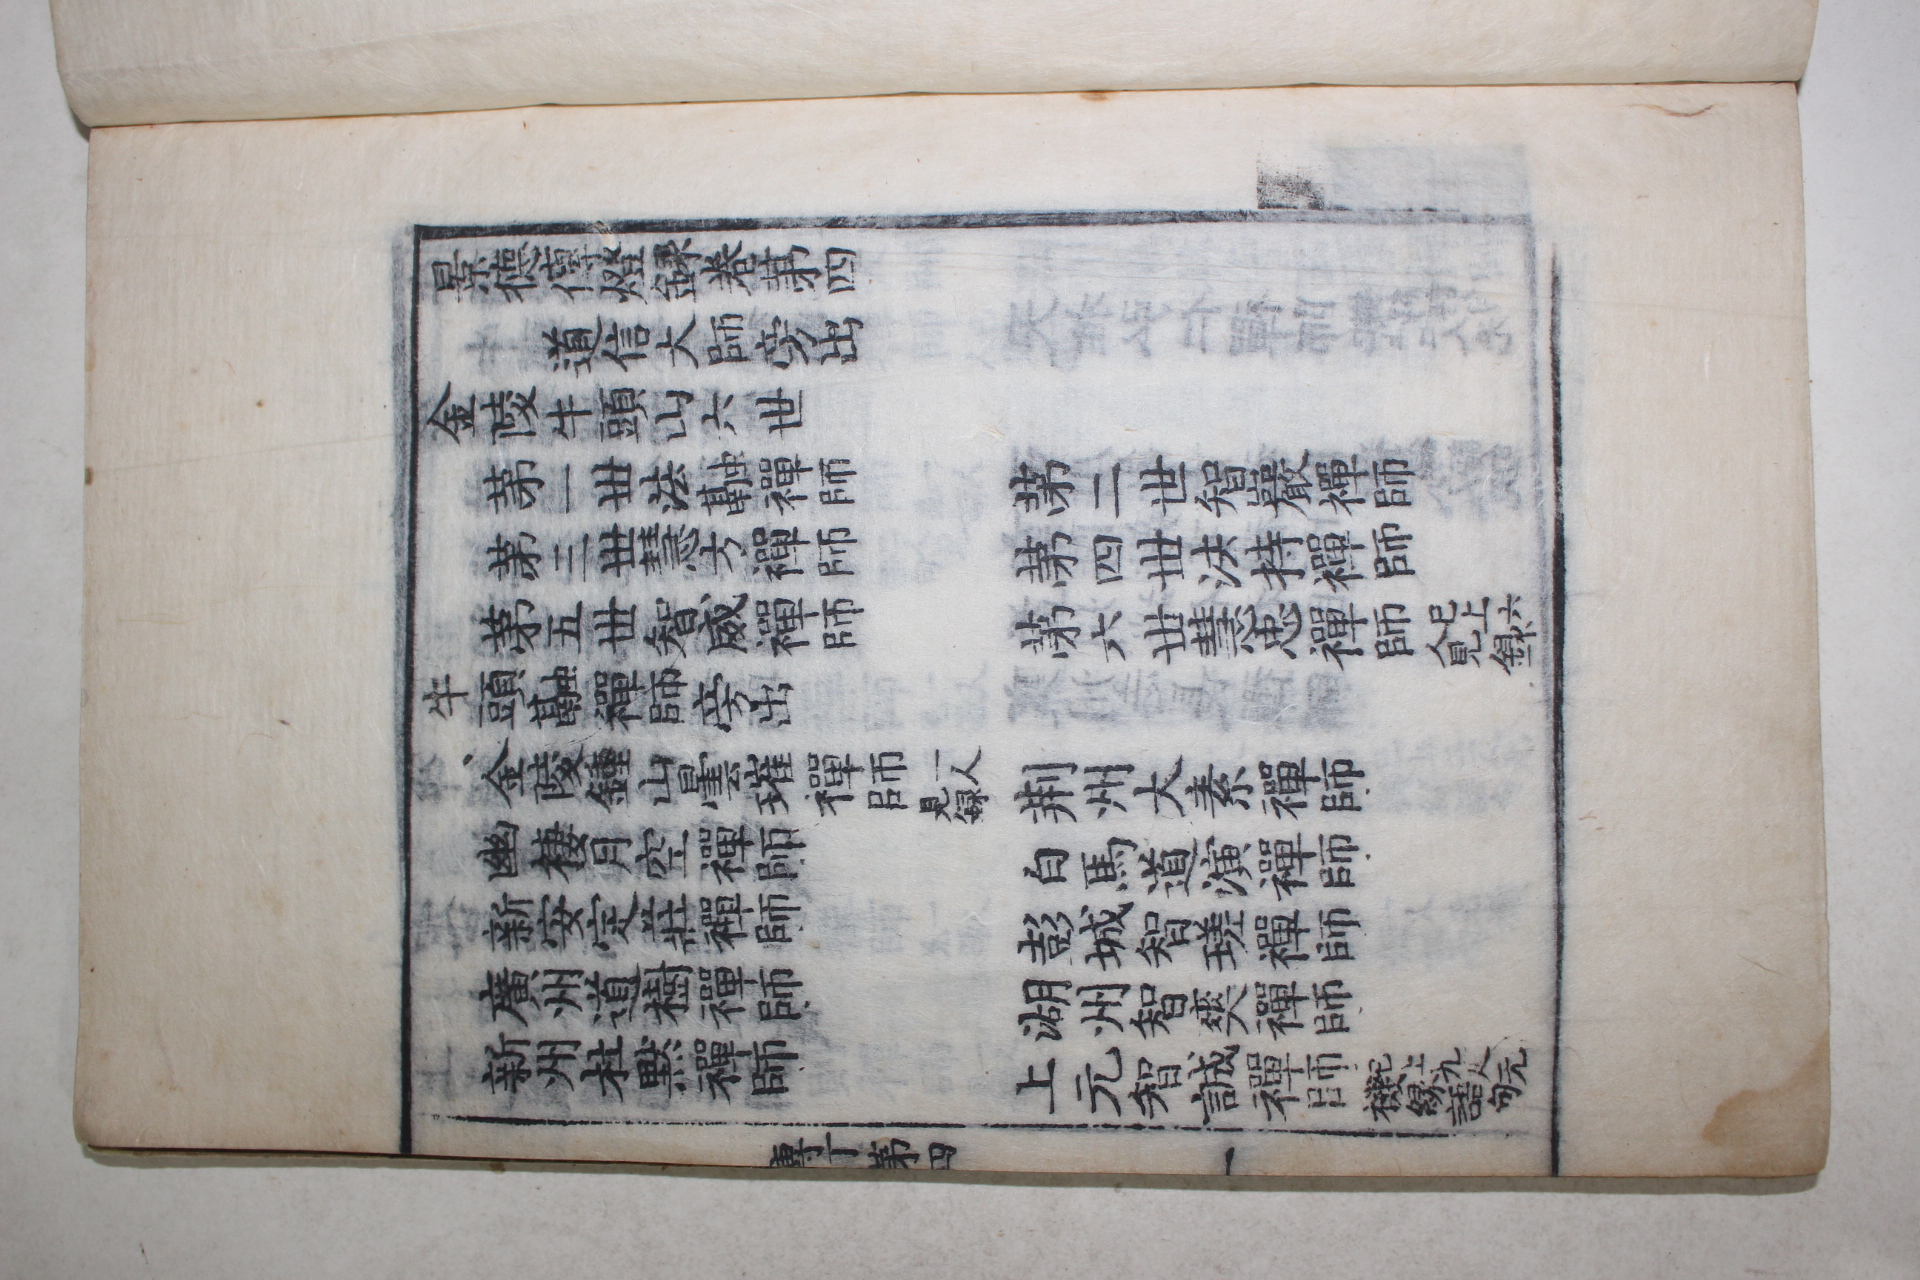 景德傳燈錄卷第四
道信大師旁出
金陵牛頭山六世
第一世法融禪師　第二世智巖禪師
第三世慧方禪師　第四世法持禪師
第五世智威禪師　第六世慧忠禪師 已上六人見錄
牛頭融禪師旁出
金陵鍾山曇璀禪師 一人見錄　荊州大素禪師
幽棲月空禪師　白馬道演禪師
新安定莊禪師　彭城智瑳禪師
廣州道樹禪師　湖州智爽禪師
新州杜默禪師　上元智誠禪師 已上九人无機緣語句
第四　一